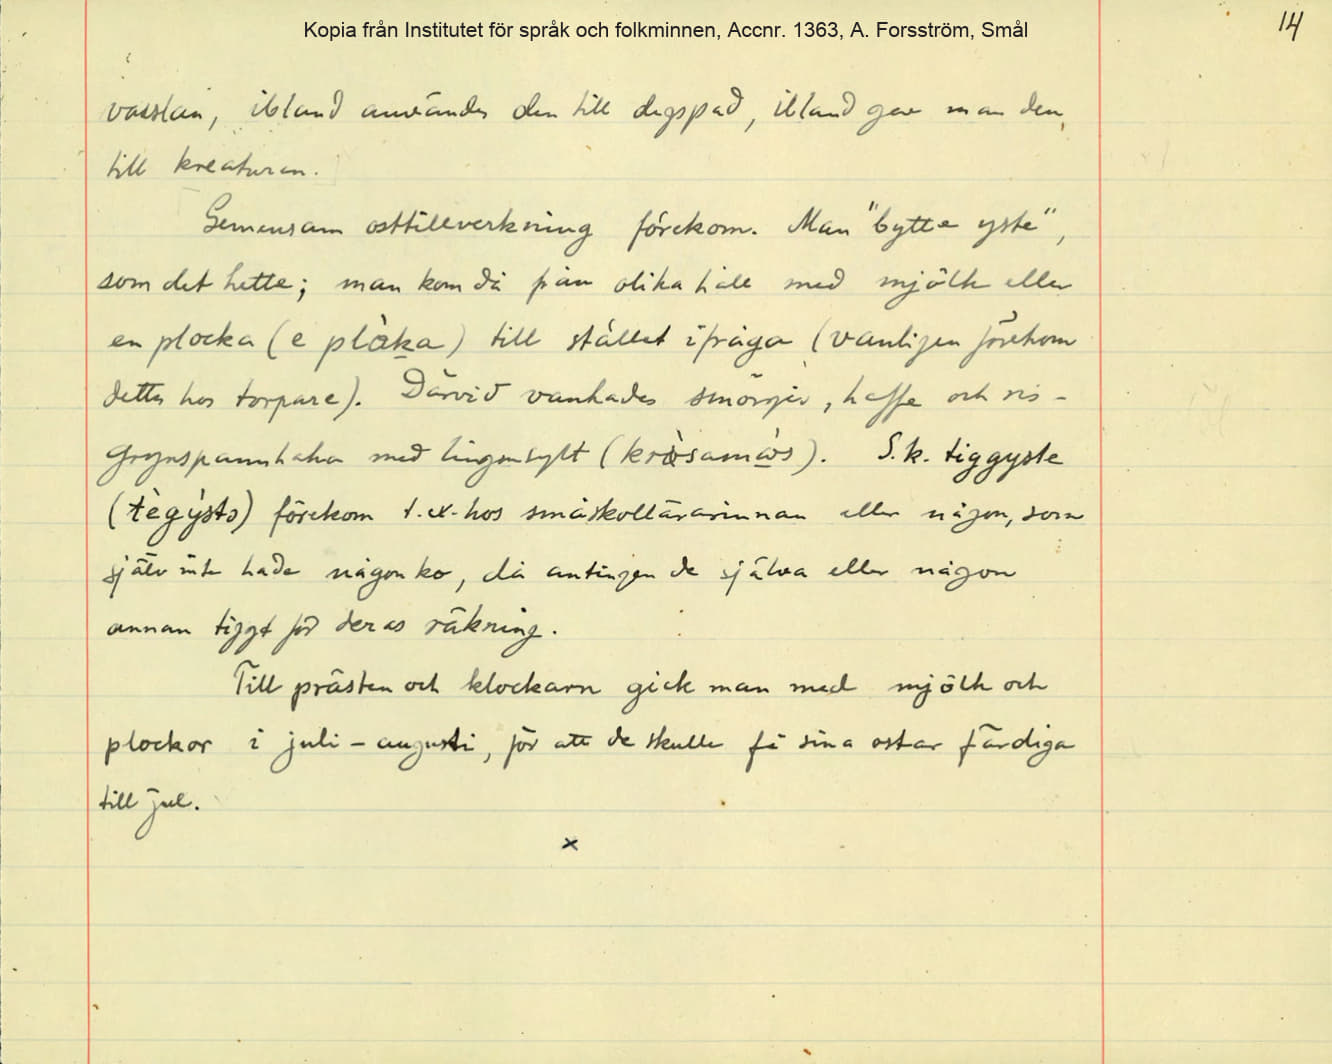 Kopia från Institutet för språk och folkminnen, Accnr. 1363, A. Forsström, Smål
14
vasslan, ibland användes den till degspad, ibland gav man den,
till kreaturen.
Gemensam osttillverkning förekom. Man "bytte yste",
som det hette; man kom då från olika håll med mjölk eller
en plocka (e plò̀ka) till stället ifråga (vanligen förekom
detta hos torpare). Därvid vankades smörgås, kaffe och ris-
grynspannkaka med lingonsylt (krò̀samò̀s). S.k. tiggyste
(tègýstə) förekom t.ex. hos småskollärarinnan eller någon, som
själv inte hade någon ko, då antingen de själva eller någon
annan tiggt för deras räkning.
Till prästen och klockarn gick man med mjölk och
plockor i juli – augusti, för att de skulle få sina ostar färdiga
till jul.
x